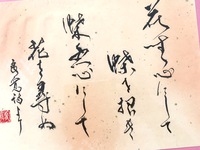 花無心にして
蝶を招き
蝶無心にして
花を尋ぬ
良寛